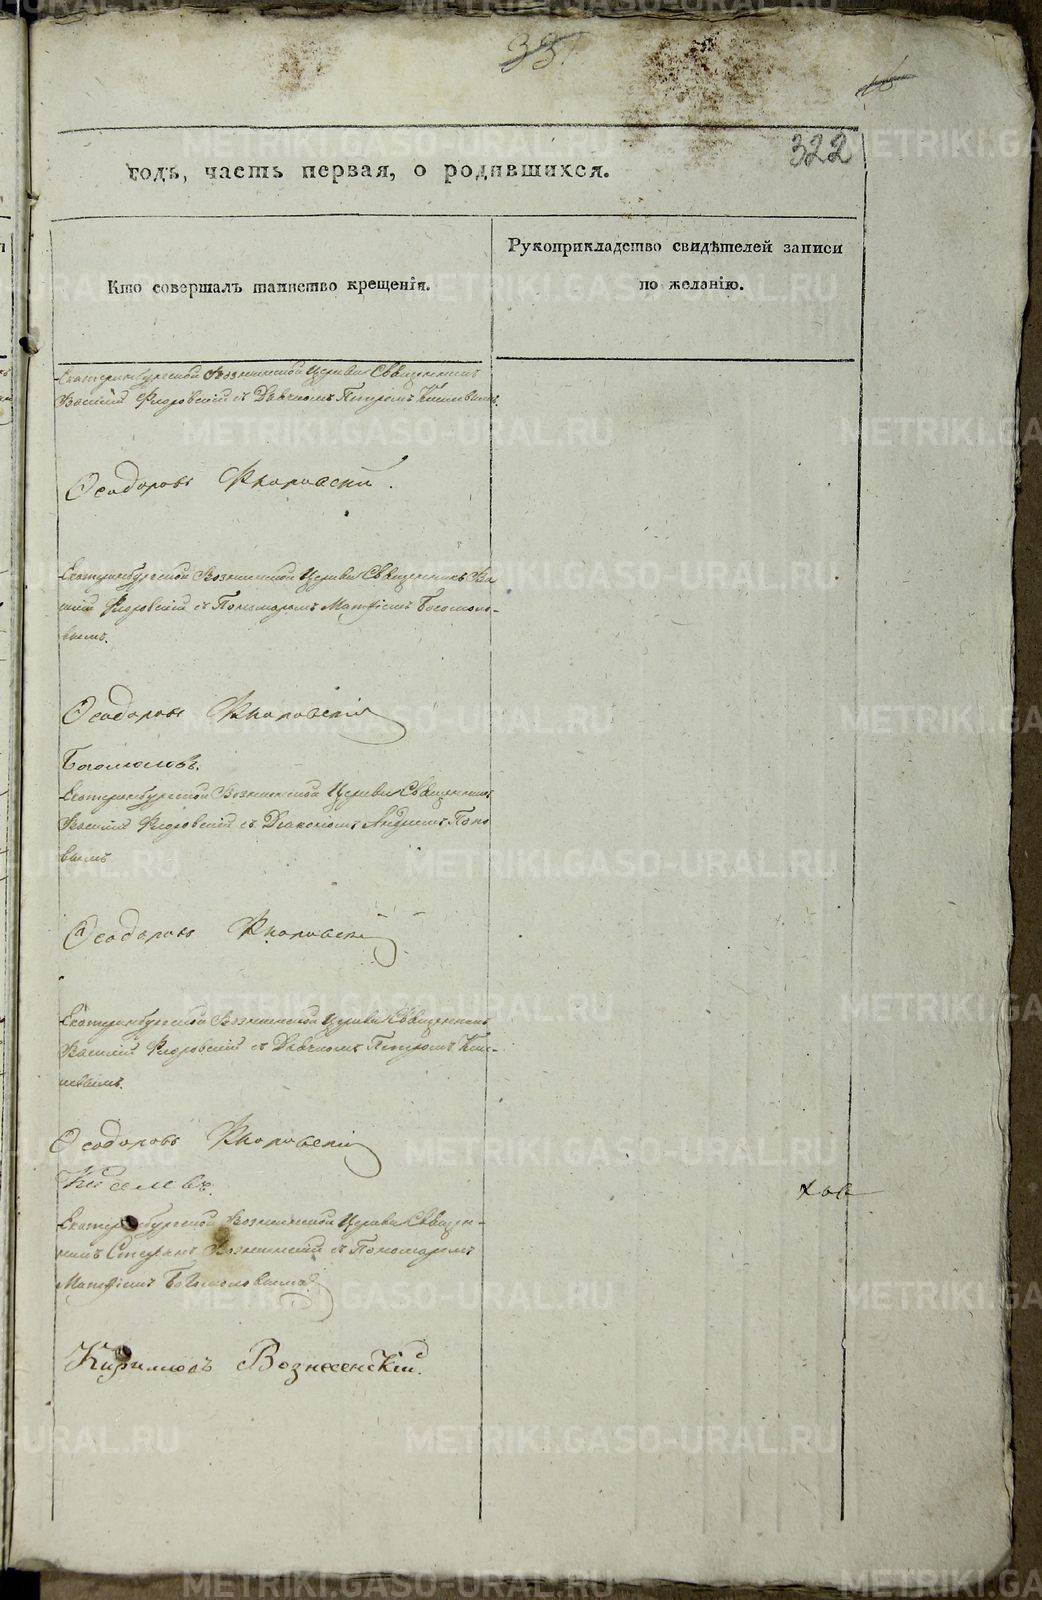 331
16
322
годъ, часть первая, о родившихся.
Кто совершалъ таинство крещенія.
Рукоприкладство свидѣтелей записи
по желанію.
Екатеринбургской Вознесенской Церкви Священникъ
Василій Флоровскій съ Дьячкомъ Петромъ Киселевымъ.
Ѳеодоровъ Флоровскій.
Екатеринбургской Вознесенской Церкви Священникъ Ва-
силій Флоровскій съ Пономаремъ Матфіемъ Богомоло-
вымъ.
Ѳеодоровъ Флоровскій
Богомоловъ.
Екатеринбургской Вознесенской Церкви Священникъ
Василій Флоровскій съ Діакономъ Андреемъ Попо
вымъ
Ѳеодоровъ Флоровскій
Екатеринбургской Вознесенской Церкви Священникъ
Василій Флоровскій съ Дьячкомъ Петромъ Кис-
елевымъ.
Ѳеодоровъ Флоровскій
Киселевъ.
Екатеринбургской Вознесенской Церкви Священ-
никъ Стефанъ Вознесенскій съ Пономаремъ
Матфіемъ Богомоловымъ
Кирилловъ Вознесенскій.
METRIKI.GASO-URAL.RU